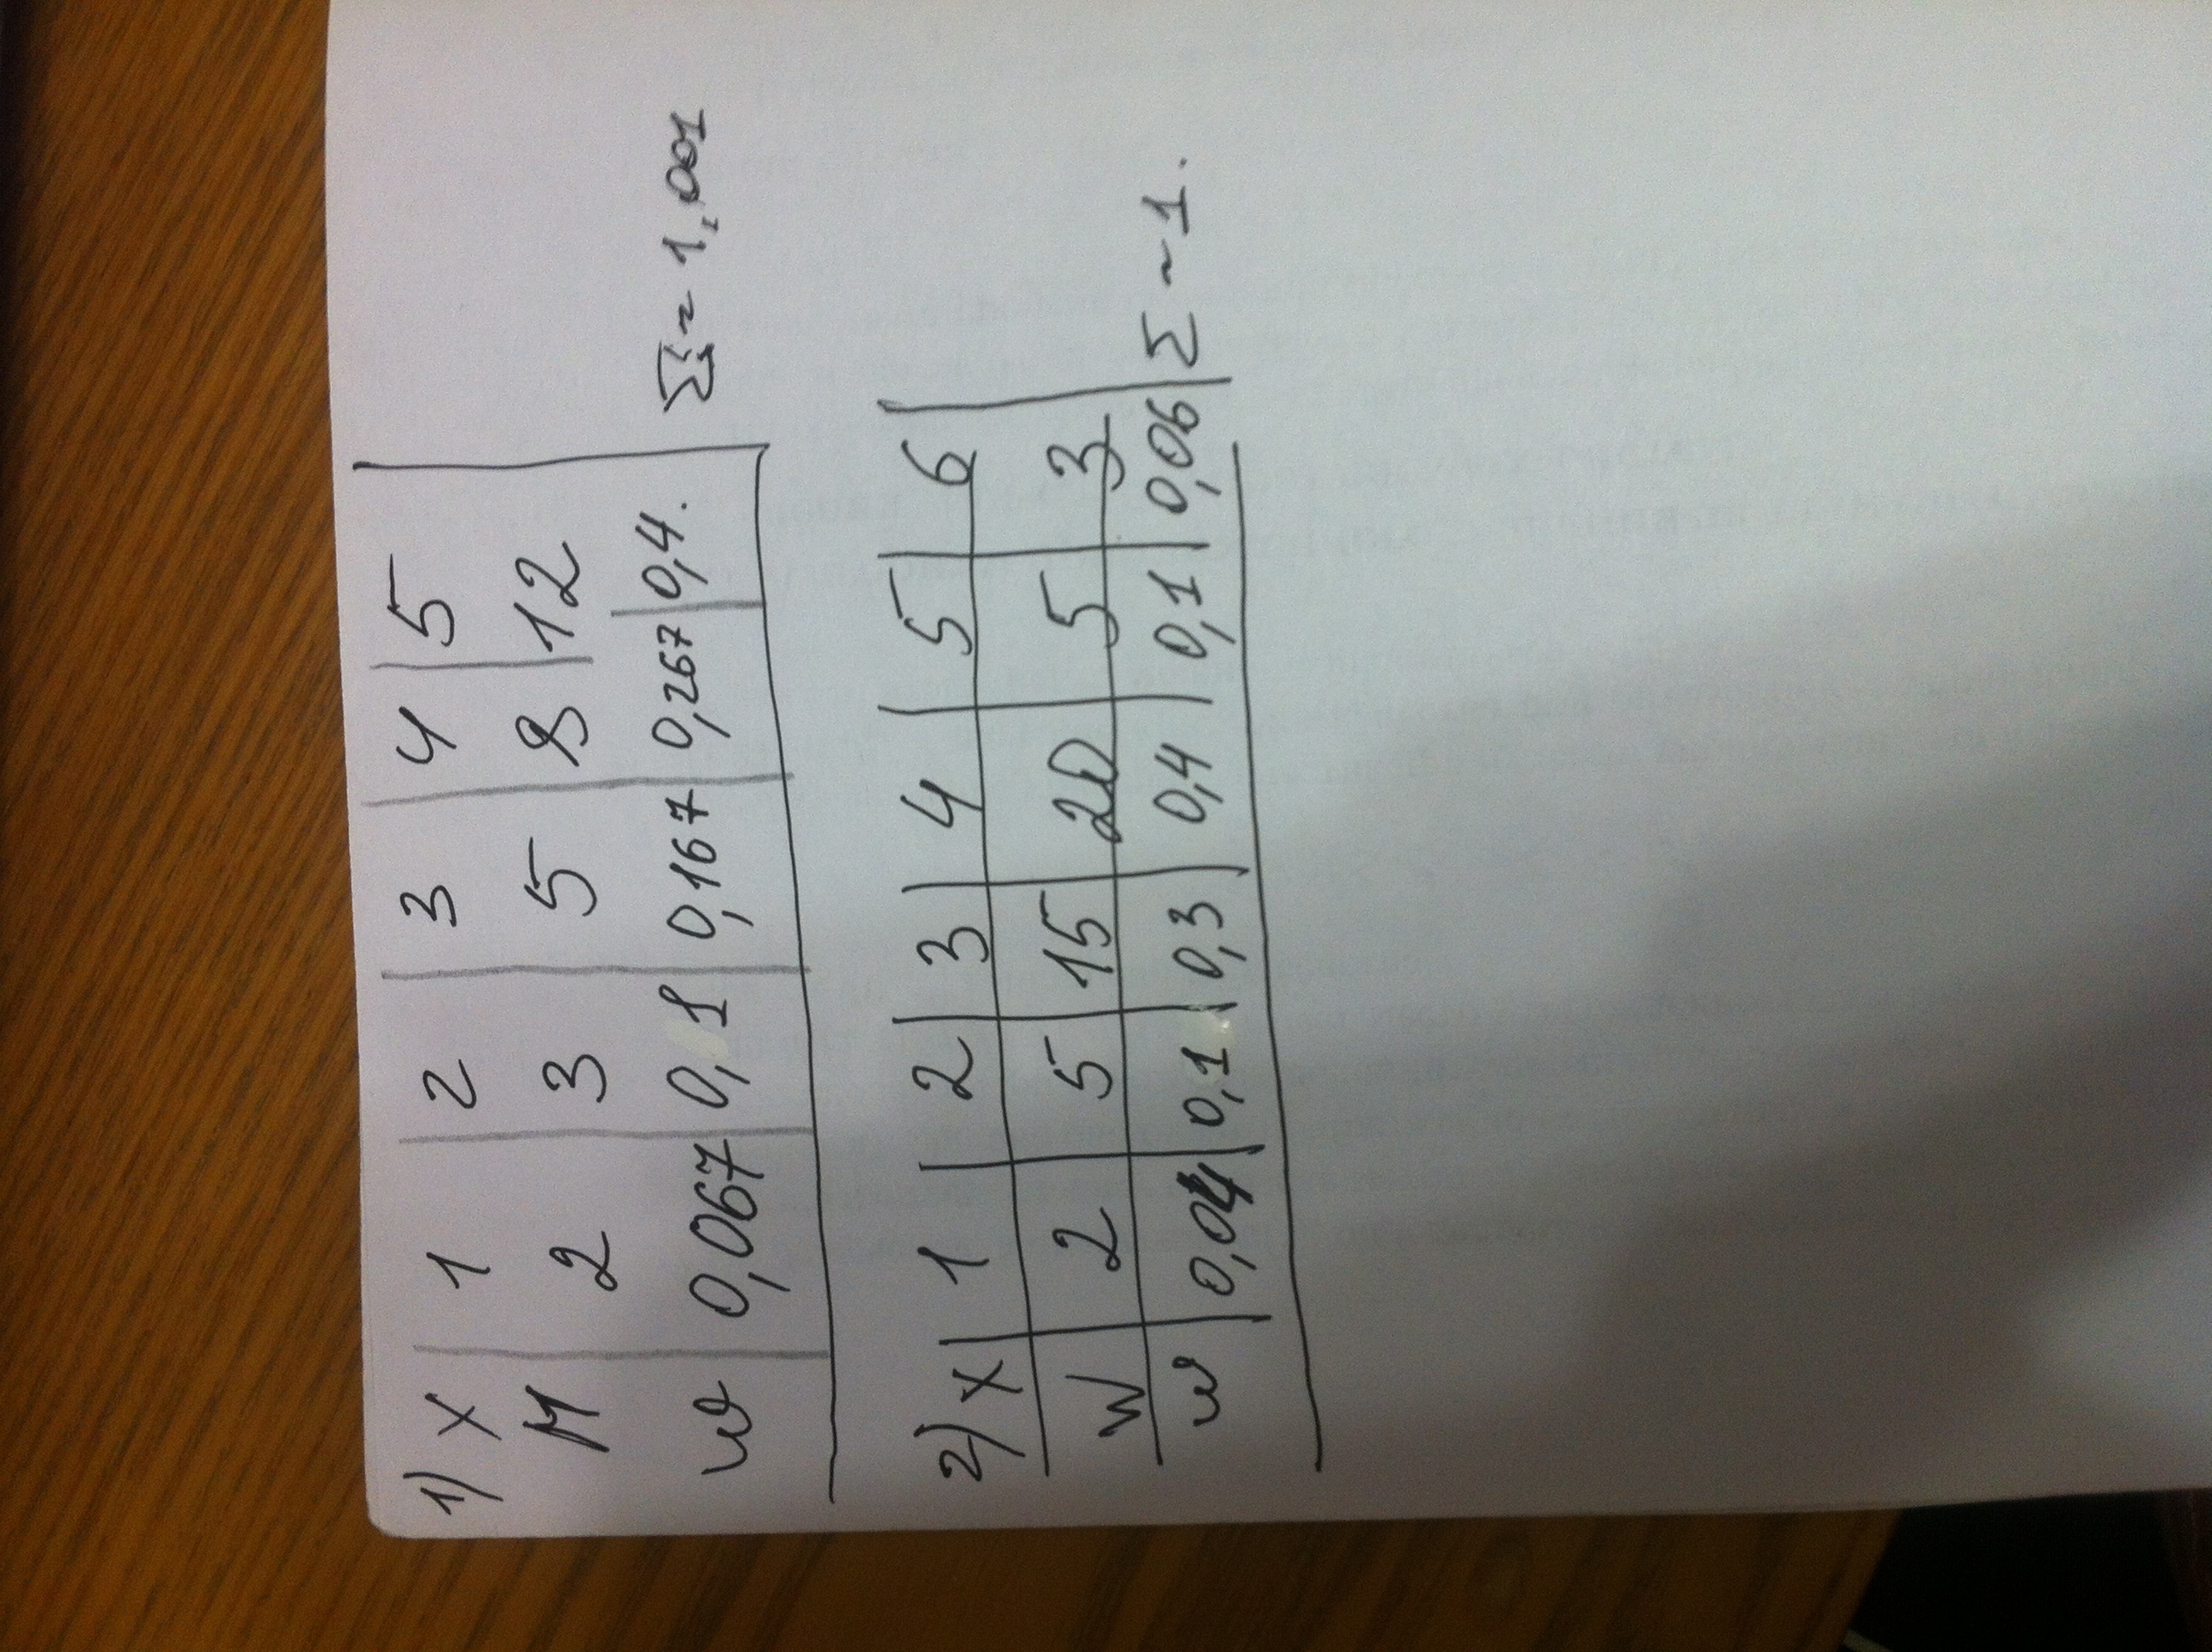 1) X 1 2 3 4 5
M 2 3 5 8 12
w 0,067 0,1 0,167 0,267 0,4. Σ ~ 1,001
2) X 1 2 3 4 5 6
W 2 5 15 20 5 3
w 0,04 0,1 0,3 0,4 0,1 0,06 Σ ~ 1.